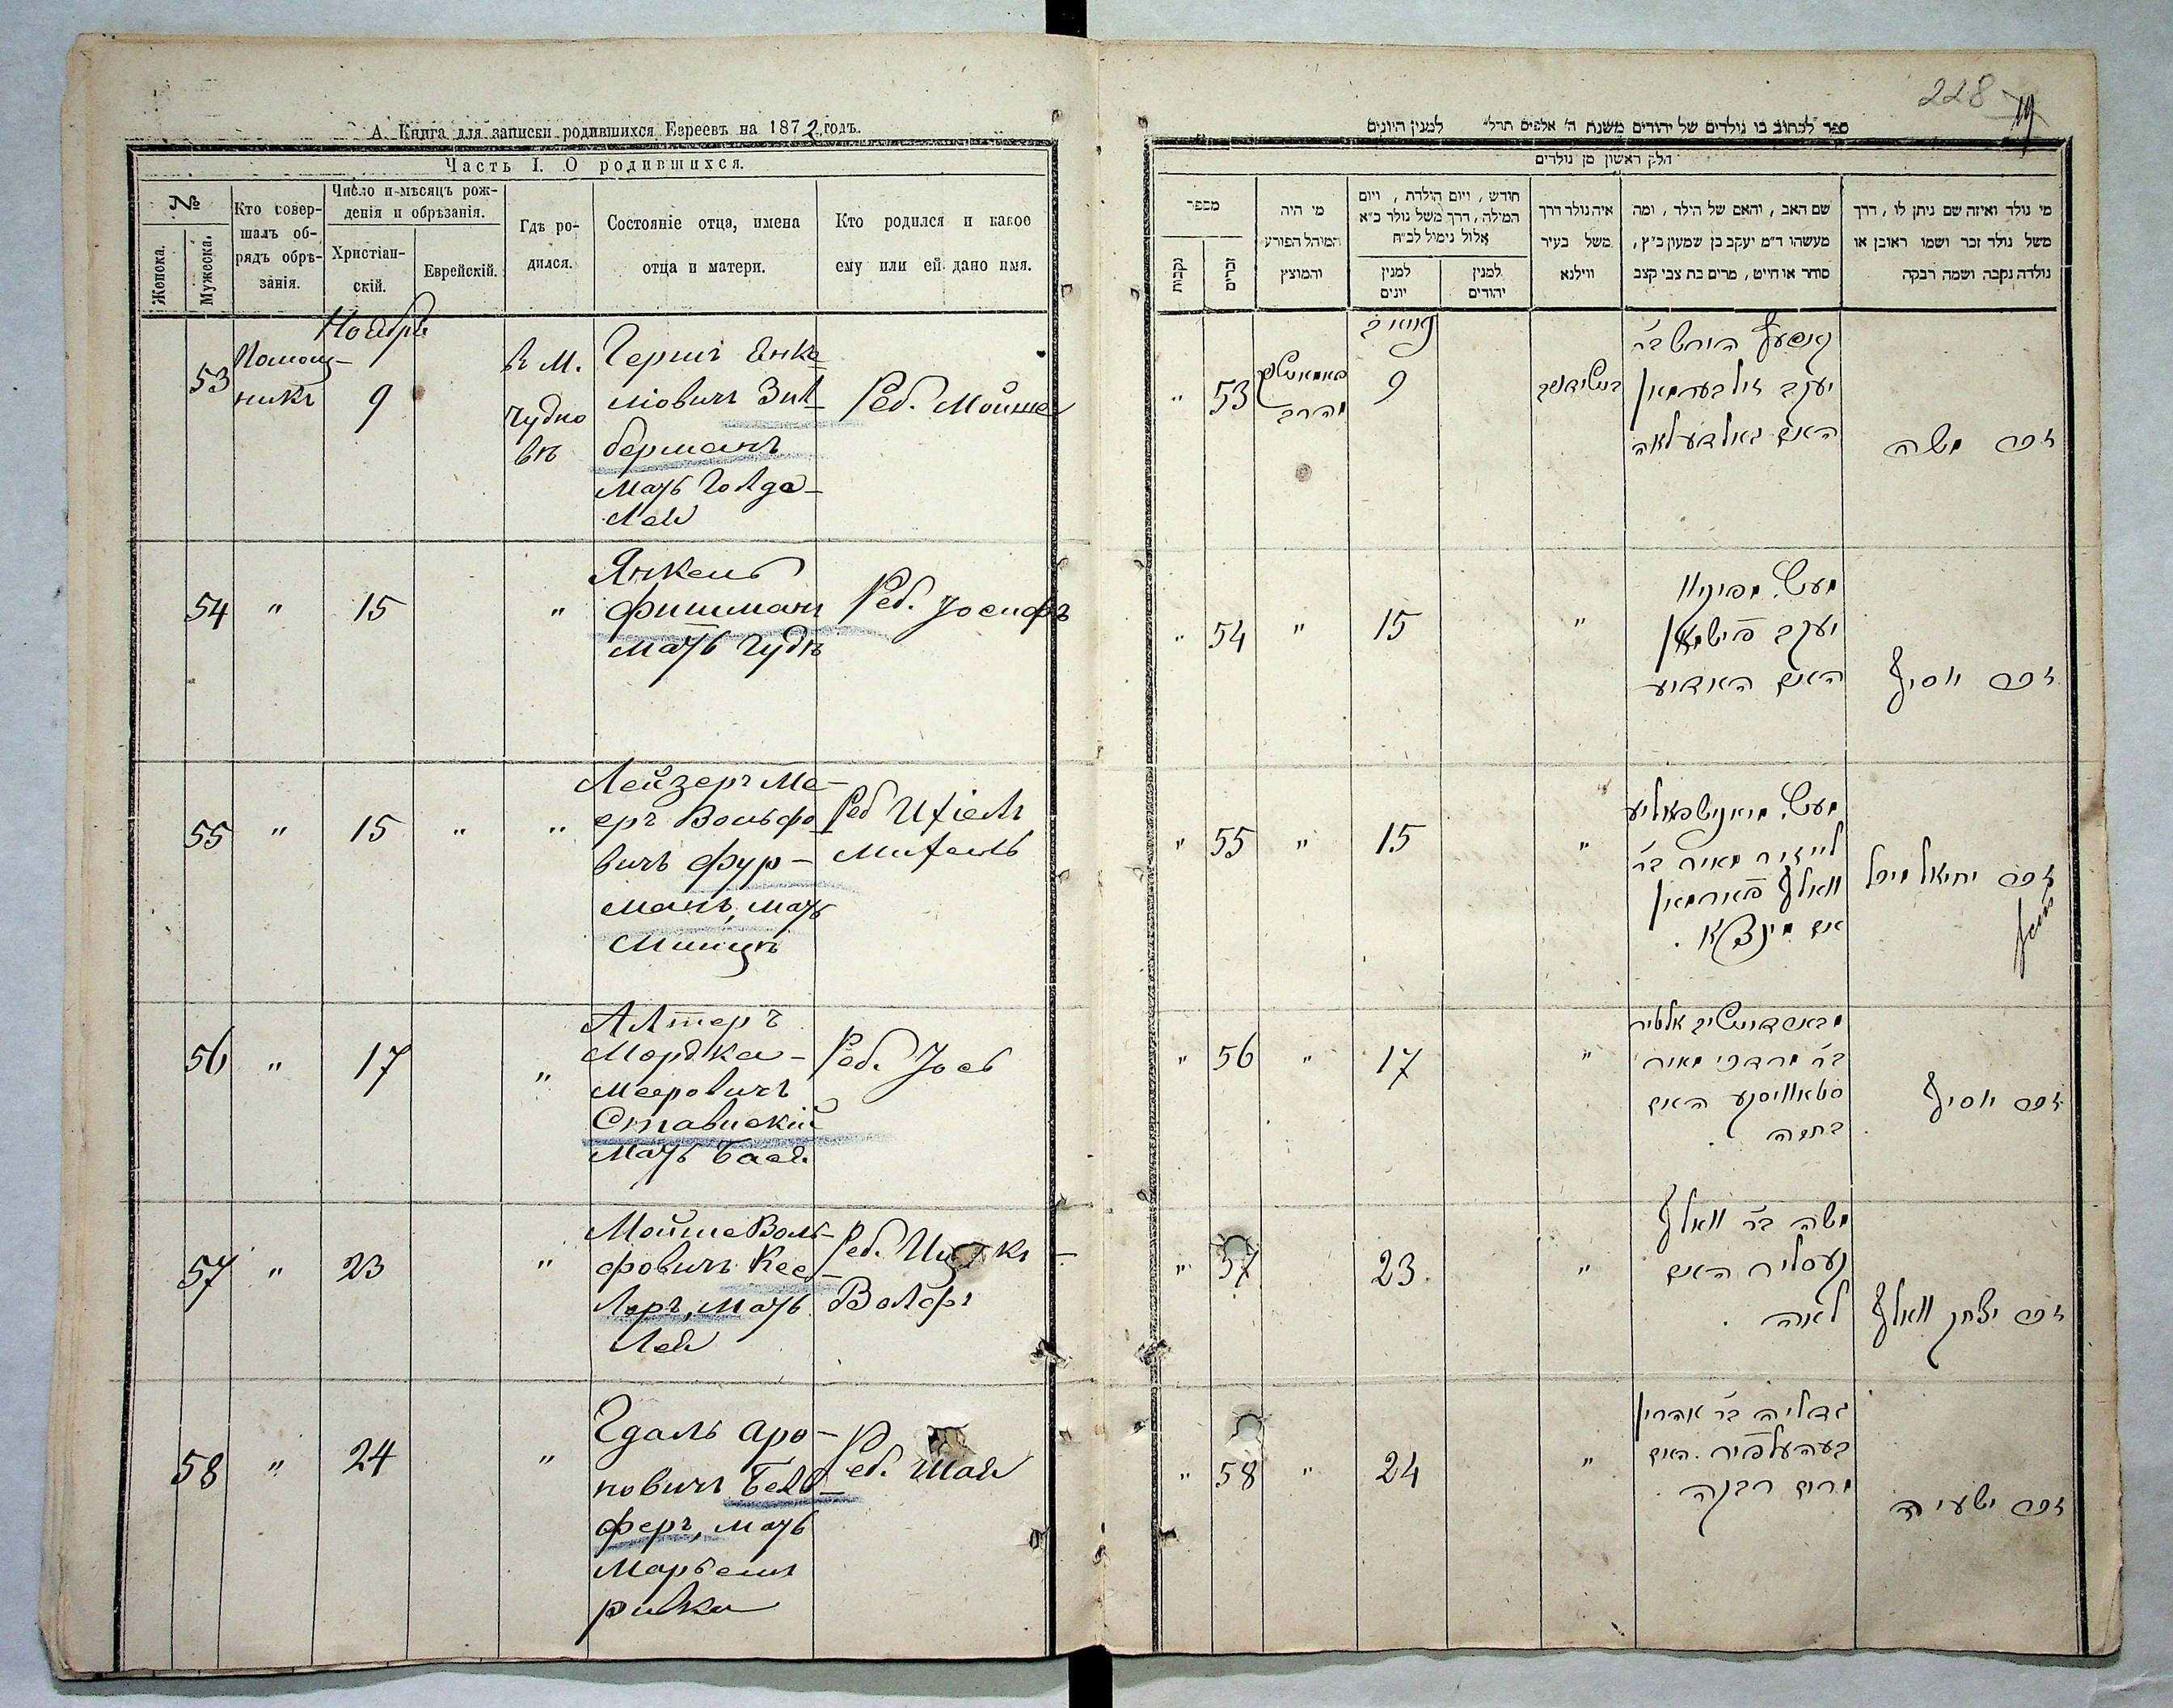 А. Книга для записки родившихся Евреевъ на 1872 годъ.
Часть I. О родившихся.
№
Женска.
Мужеска.
Кто совер-
шалъ об-
рядъ обрѣ-
занія.
Число и мѣсяцъ рож-
денія и обрѣзанія.
Христіан-
скій.
Еврейскій.
Гдѣ ро-
дился.
Состояніе отца, имена
отца и матери.
Кто родился и какое
ему или ей дано имя.
Ноябрь
53
Помощ-
никъ
9
въ М.
Чудно
вѣ
Гершъ Енке
ліовичъ Зил
берманъ
мать Голда-
Лея
Реб. Мойше
54 " 15 "
Янкель
Фишманъ
мать Гудѣ
Реб. Іосифъ
55 " 15 " "
Лейзеръ Ме-
еръ Вольфо
вичъ Фур-
манъ, мать
Реб Ихіель
Михель
56 " 17 "
Алтеръ
Мордка-
Мееровичъ
Ставискій
мать Бася
Реб. Іось
57 " 23 "
Мойше Воль-
фовичъ Кес-
леръ, мать
Лея
Реб.
Волфъ
58 " 24 "
Гдаль Аро-
новичъ Бел-
феръ, мать
ривка
Реб. Шая
228
ספר לכתוב בו נולדים של יהודים משנת ה' אלפים תרל" למנין היונים
חלק ראשון מן נולדים
מספר
נקבות
זכרים
מי היה
המוהל הפורע
והמוצץ
חודש, ויום הולדת, ויום
המילה, דרך משל נולד כ"א
אלול נימול לכ"ח
למנין
יונים
למנין
יהודים
איה נולד דרך
משל בעיר
ווילנא
שם האב, והאם של הילד, ומה
מעשהו ד"מ יעקב בן שמעון כ"ץ,
סוחר או חייט, מרים בת צבי קצב
מי נולד ואיזה שם ניתן לו, דרך
משל נולד זכר ושמו ראובן או
נולדה נקבה ושמה רבקה
" 53
9
הירש ב"ר
יעקב זילבערמאן
האם גאלדע לאה
זכר משה
" 54 " 15 "
יעקב פישמאן
זכר יוסיף
" 55 " 15 "
לייזיר מאיר ב"ר
וואלף פוארמאן
זכר יחיאל מיכל
" 56 " 17 "
אלטיר
ב"ר מרדכי מאיר
האם
זכר יוסיף
" 57 23 "
משה ב"ר וואלף
קעסליר האם
לאה
זכר יצחק וואלף
" 58 " 24 "
גדליה ב"ר אהרון
האם
זכר ישעיה